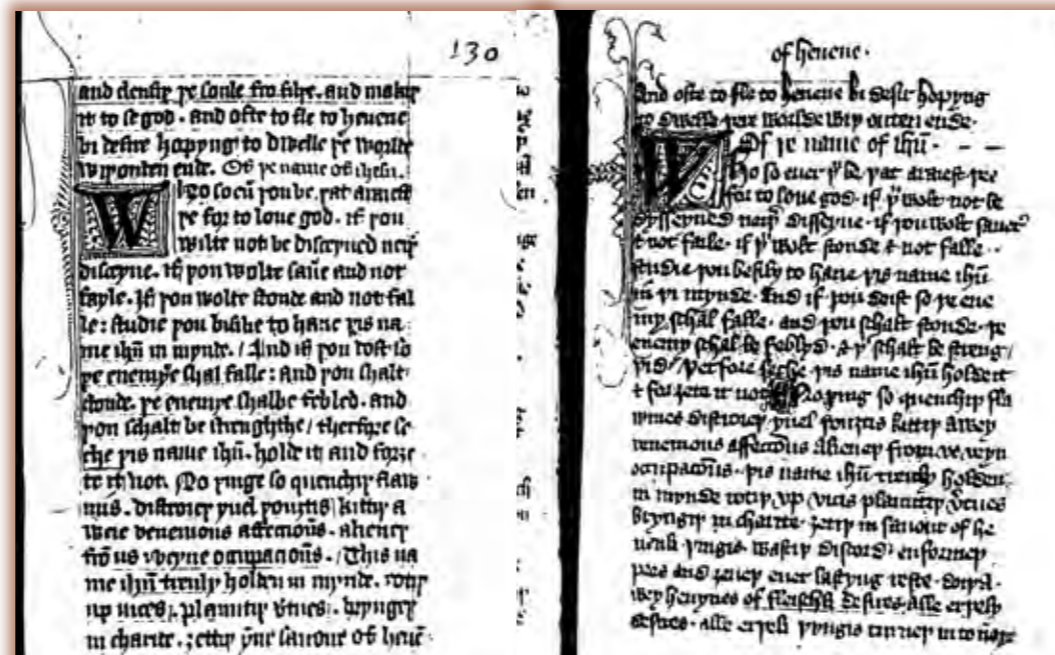 130
and clensiþ þe soule fro filþe. and makiþ
it to se god. and ofte to fle to heuene
bi desire hopyng to dwelle þe worlde
wiþouten ende. Of þe name of ihesu.
Who so euer þou be. þat araiest
þe for to loue god. if þou
wilte not be disceyued neiþer
disceyue. if þou wolte saue and not
fayle. If þou wolte stonde and not fal
le: studie þou bisilie to haue þis na
me ihū in mynde. / And if þou dost so
þe enemye shal falle: and þou shalt
stonde. þe enemye shalbe febled. and
þou schalt be strengþhe / therfore se
che þis name ihū. holde it and forȝe
te it not. No þinge so quenchiþ flaw
mus. distroieþ yuel þouȝtis kittiþ a
weie venemous affeccioūs. alieneþ
fro us veyne occupacioūs. / This na
me ihū treuly holden in mynde. rotiþ
up uices. plauntiþ vtues. bryngeþ
in charite. ȝettiþ ynne sauoure of heuē
of heuene.
And ofte to fle to heuene bi desir hopyng
to dwelle þere worlde wiþ outen ende.
Of þe name of ihū. - -
Who so euer þu be þat araiest þee
for to loue god. if þu wolt not be
dysseyued neiþer disseyue. if þou wolt sauer
& not faile. if þu wolt stonde & not falle..
studie þou besily to haue þis name ihū
in þi mynde. And if þou doist so þe ene
my schal falle. and þou schalt stonde. þe
enemy schal be feblyd. & þu schalt be streng/
þid / Þerfore seche þis name ihū holde it
& forȝete it not No þing so quenchiþ fla
wmes distroieþ yuel þouȝtis kittiþ awey
venemous affeccoūs alieneþ from us veyn
occupacoūs. þis name ihū treuly holden
in mynde rotiþ vp vicis plauntiþ v̄tues
bryngiþ in charite. ȝettiþ in sauour of he
uenli þingis. wastiþ discord: enformeþ
pees and ȝeueþ euer lastyng reste. doiþ a
wey heuynes of fleischli desires. alle erþely
desires. alle erþeli þyngis turneþ in to noye